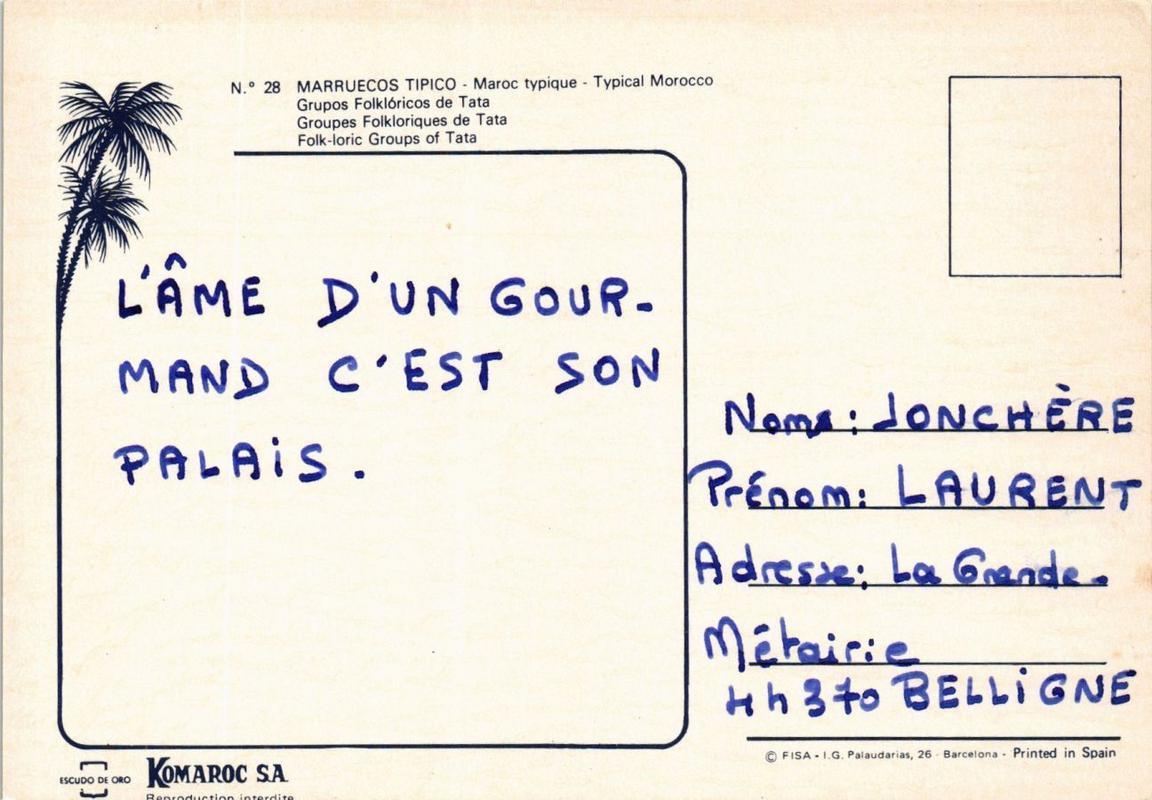 N.º 28 MARRUECOS TIPICO - Maroc typique - Typical Morocco
Grupos Folklóricos de Tata
Groupes Folkloriques de Tata
Folk-loric Groups of Tata
L'ÂME D'UN GOUR-
MAND C'EST SON
PALAIS.
Nom : JONCHÈRE
Prénom: LAURENT
Adresse: La Grande.
Métairie
44370 BELLIGNE
© FISA - I.G. Palaudarias, 26 - Barcelona - Printed in Spain
ESCUDO DE ORO KOMAROC S.A.
Reproduction interdite